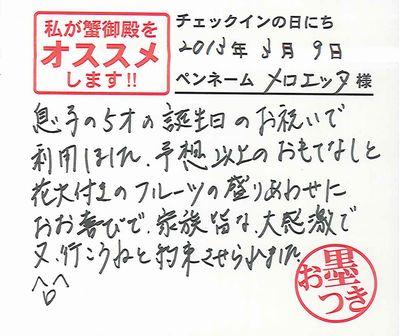 私が蟹御殿を
オススメ
します!!
チェックインの日にち
2013年3月9日
ペンネーム メロエッタ 様
息子の5才の誕生日のお祝いで
利用しました。予想以上のおもてなしと
花火付きのフルーツの盛りあわせに
おお喜びで、家族皆な、大感激で
又、行こうねと約束させられました。
^o^
お墨つき